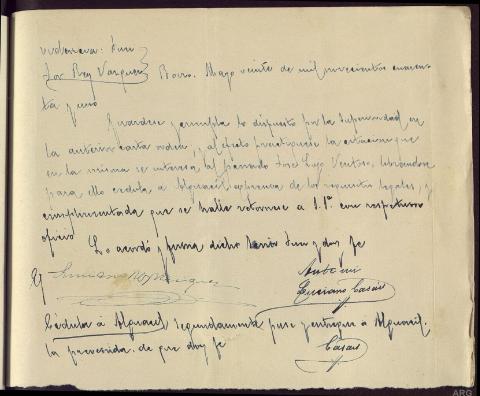 Providencia: Juez
Sor Rey Vazquez Boiro. Mayo veinte de mil novecientos cuaren-
ta y uno
Guardese y cumpla lo dispuesto por la Superioridad en
la anterior carta orden, y al efecto practiquese la citacion que
en la misma se interesa del penado José Lijo Ventoso, librandose
para ello cedula á Alguacil expresiva de los requisitos legales, y
cumplimentada que se halle retornese a S.Sª con respetuoso
oficio
Lo acordó y firma dicho Señor Juez y doy fe
Ante mi
Luciano Casais
Cedula á Alguacil Seguidamente puse y entregue a Alguacil
la prevenida. de que doy fe
Casais
ARG